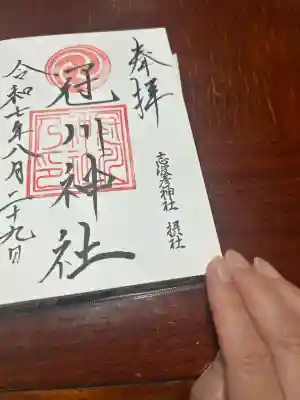 奉拝
志波彦神社 摂社
冠川神社
令和七年八月二十九日